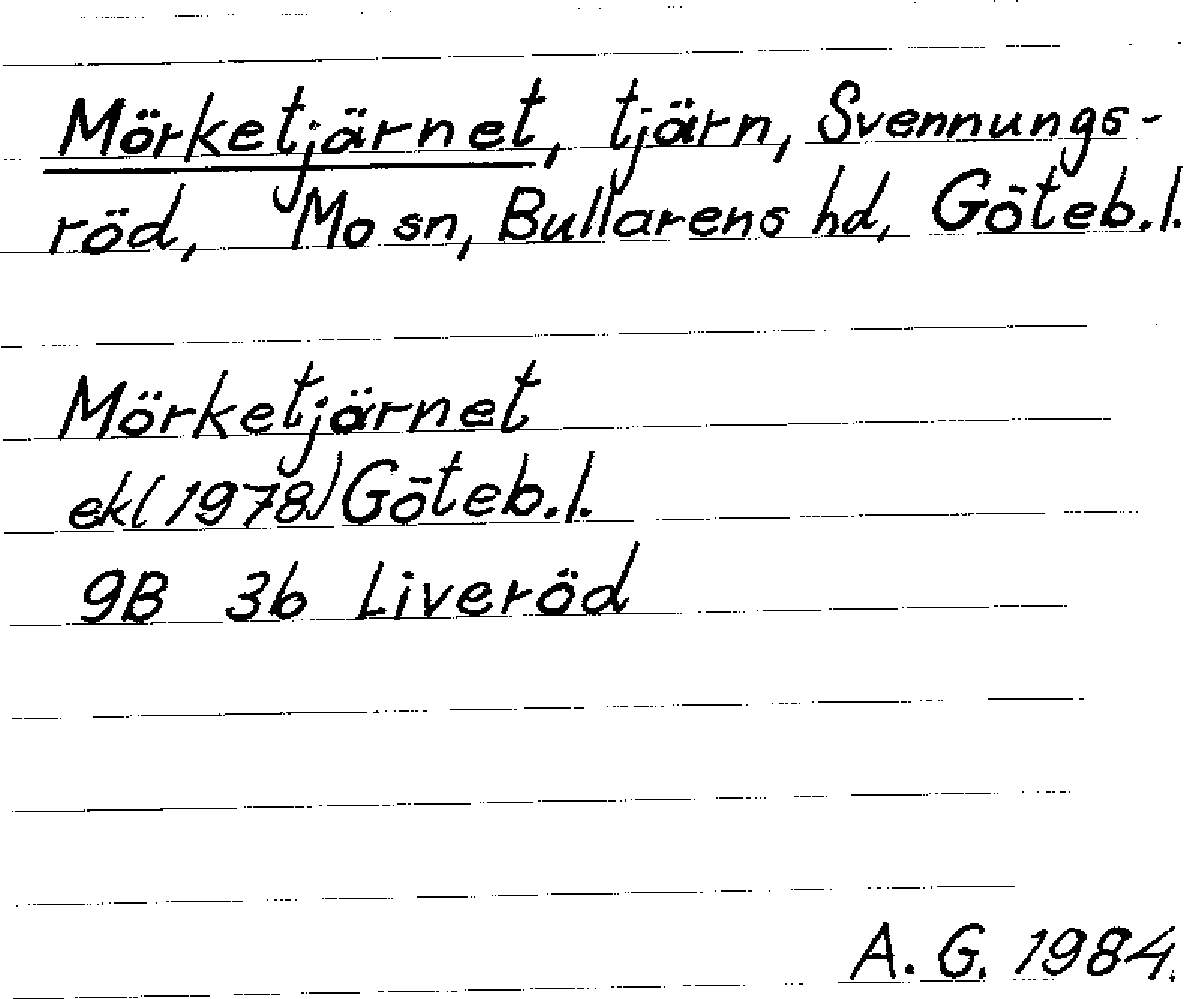 Mörketjärnet, tjärn, Svennungs-
röd, Mo sn, Bullarens hd, Göteb.l.
Mörketjärnet
ek(1978) Göteb.l.
9B 3b Liveröd
A. G. 1984.